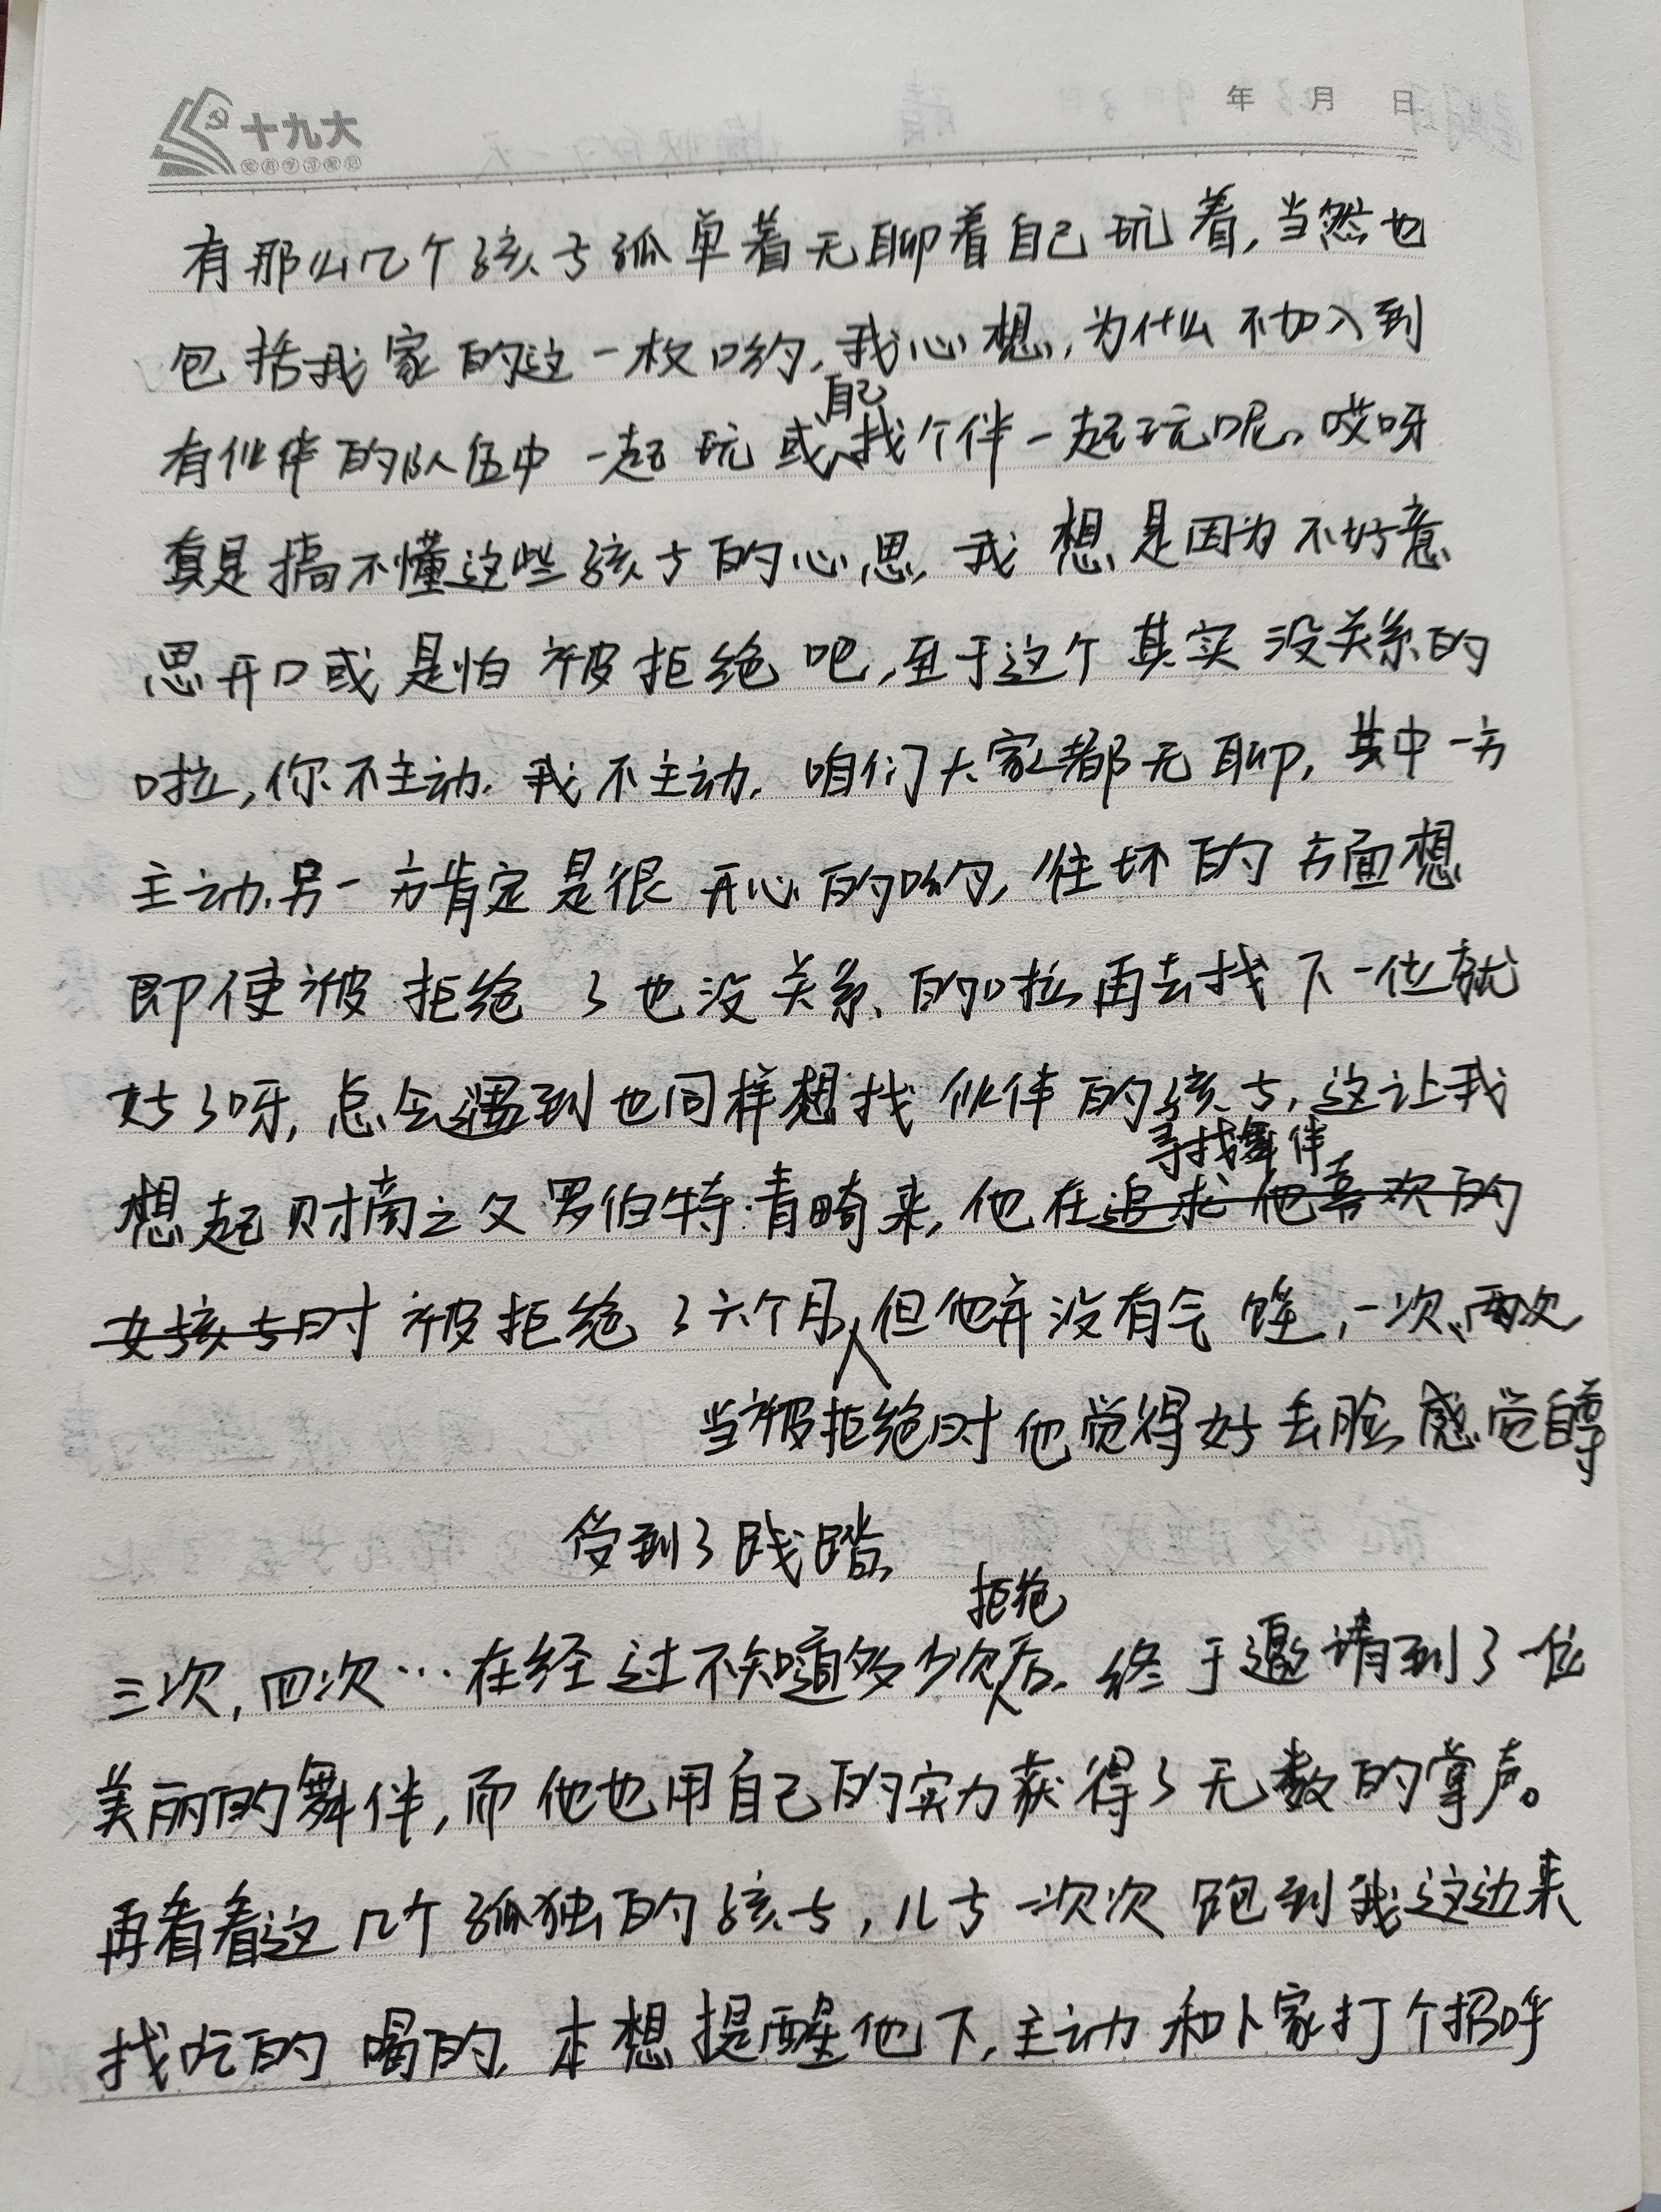 十九大
年 月 日
有那么几个孩子孤单着无聊着自己玩着,当然也
包括我家的这一枚哟,我心想,为什么不加入到
自己
有伙伴的队伍中一起玩或找个伴一起玩呢。哎呀
真是搞不懂这些孩子的心思,我想是因为不好意
思开口或是怕被拒绝吧,至于这个其实没关系的
啦,你不主动,我不主动,咱们大家都无聊,其中一方
主动,另一方肯定是很开心的哟,往坏的方面想
即使被拒绝了也没关系的啦再去找下一位就
好了呀,总会遇到也同样想找伙伴的孩子,这让我
寻找舞伴
想起财商之父罗伯特·青崎来,他在追求他喜欢的
女孩子时被拒绝了六个月,但他并没有气馁,一次、两次,
当被拒绝时他觉得好丢脸感觉自尊
受到了践踏,
拒绝
三次,四次…在经过不知道多少次后,终于邀请到了一位
美丽的舞伴,而他也用自己的实力获得了无数的掌声。
再看看这几个孤独的孩子,儿子一次次跑到我这边来
找吃的喝的,本想提醒他下,主动和人家打个招呼